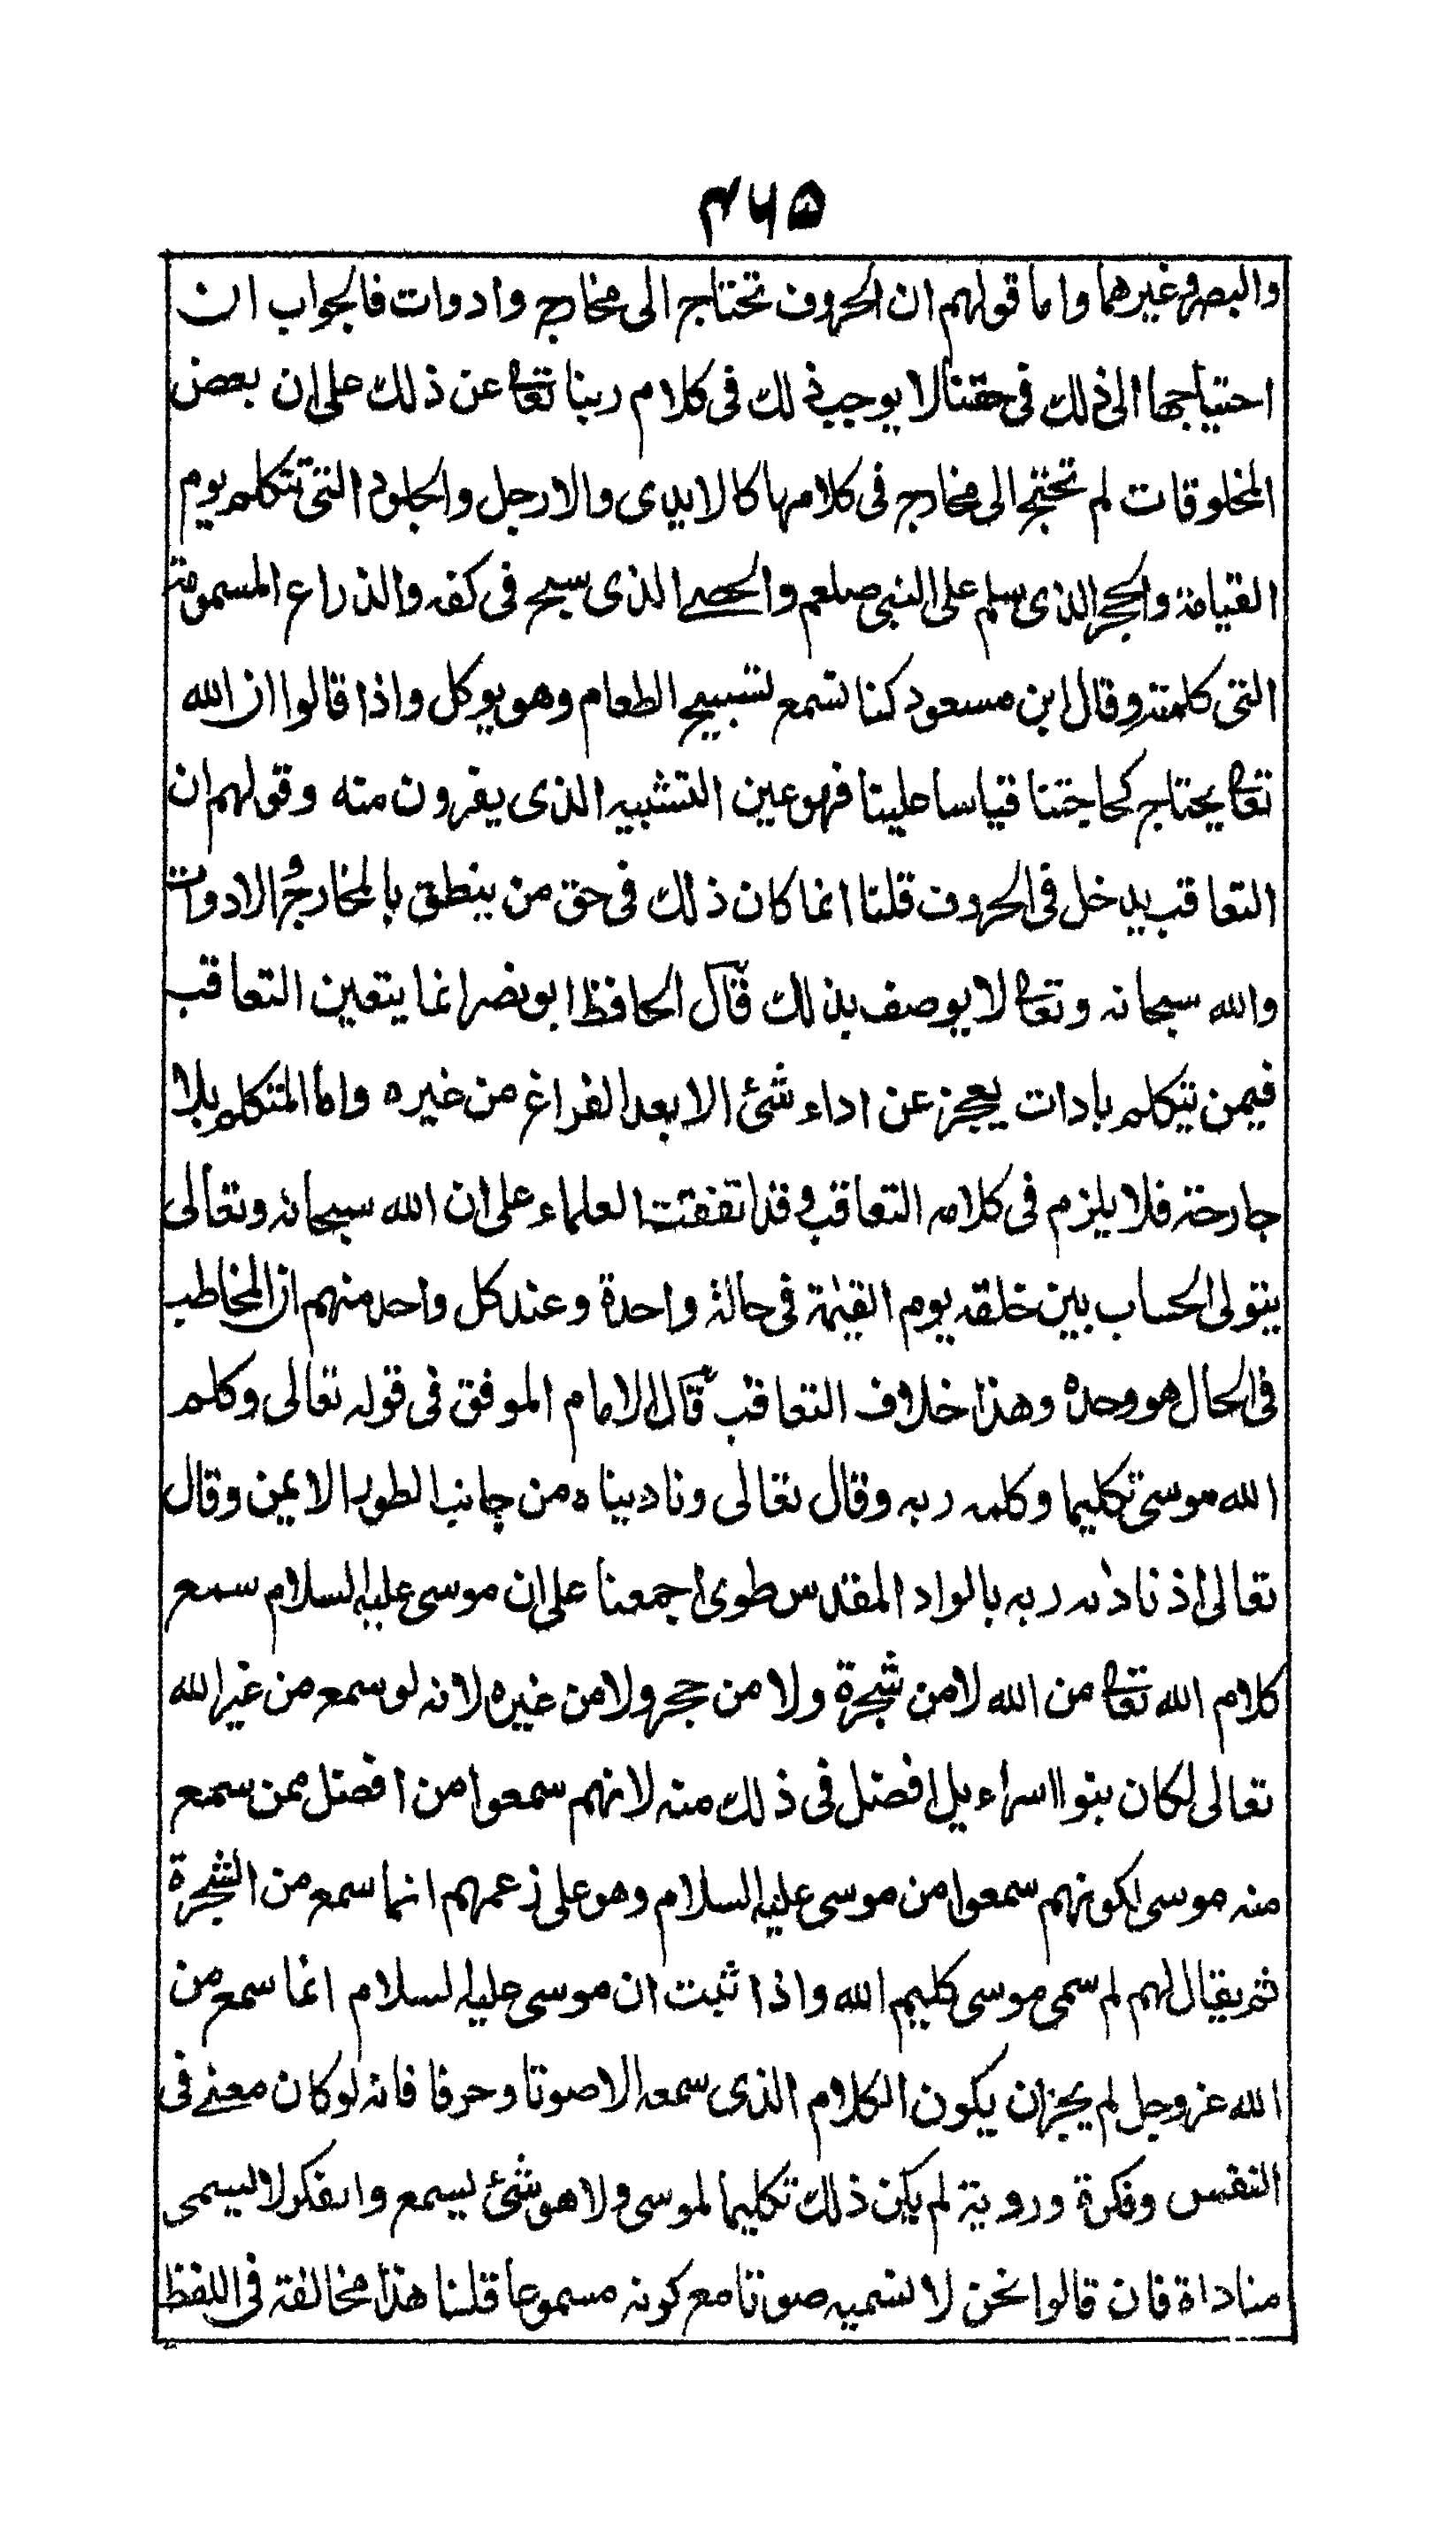 ۴۶۵
والبصر وغيرهما واما قولهم ان الحروف تحتاج الى مخارج وادوات فالجواب ان
احتياجها الى ذلك فى حقنا لا يوجب ذلك فى كلام ربنا تعا عن ذلك على ان بعض
المخلوقات لم تحتج الى مخارج فى كلامها كالايدى والارجل والجلود التى تتكلم يوم
القيامة والحجر الذى سلم على النبى صلعم والحصے الذى سبح فى كفه والذراع المسمومة
التى كلمته وقال ابن مسعود كنا نسمع تسبيح الطعام وهو يوكل واذا قالوا ان الله
تعا يحتاج كحاجتنا قياسا علينا فهو عين التشبيه الذى يفرون منه وقولهم ان
التعاقب يدخل فى الحروف قلنا انما كان ذلك فى حق من ينطق بالمخارج والادوات
والله سبحانه وتعا لا يوصف بذلك قال الحافظ ابو نصر انما يتعين التعاقب
فيمن يتكلم بادات يعجز عن اداء شئ الا بعد الفراغ من غيره واما المتكلم بلا
جارحة فلا يلزم فى كلامه التعاقب وقد اتفقت العلماء على ان الله سبحانه وتعالى
يتولى الحساب بين خلقه يوم القيٰمة فى حالة واحدة وعند كل واحد منهم ان المخاطب
فى الحال هو وحده وهذا خلاف التعاقب قال الامام الموفق فى قوله تعالى وكلم
الله موسى تكليما وكلمه ربه وقال تعالى وناديناه من جانب الطور الايمن وقال
تعالى اذ ناداه ربه بالواد المقدس طوى اجمعنا على ان موسى عليه السلام سمع
كلام الله تعا من الله لا من شجرة ولا من حجر ولا من غيره لانه لو سمع من غير الله
تعالى لكان بنوا اسراءيل افضل فى ذلك منه لانهم سمعوا من افضل ممن سمع
منه موسى لكونهم سمعوا من موسى عليه السلام وهو على زعمهم انما سمع من الشجرة
ثم يقال لهم لم سمى موسى كليم الله واذا ثبت ان موسى عليه لسلام انما سمع من
الله عز وجل لم يجز ان يكون الكلام الذى سمعه الا صوتا وحرفا فانه لو كان معنے فى
النفس وفكرة وروية لم يكن ذلك تكليما لموسى ولا هو شئ يسمع والفكر لا يسمى
مناداة فان قالوا نحن لا نسميه صوتا مع كونه مسموعا قلنا هذا مخالفة فى اللفظ